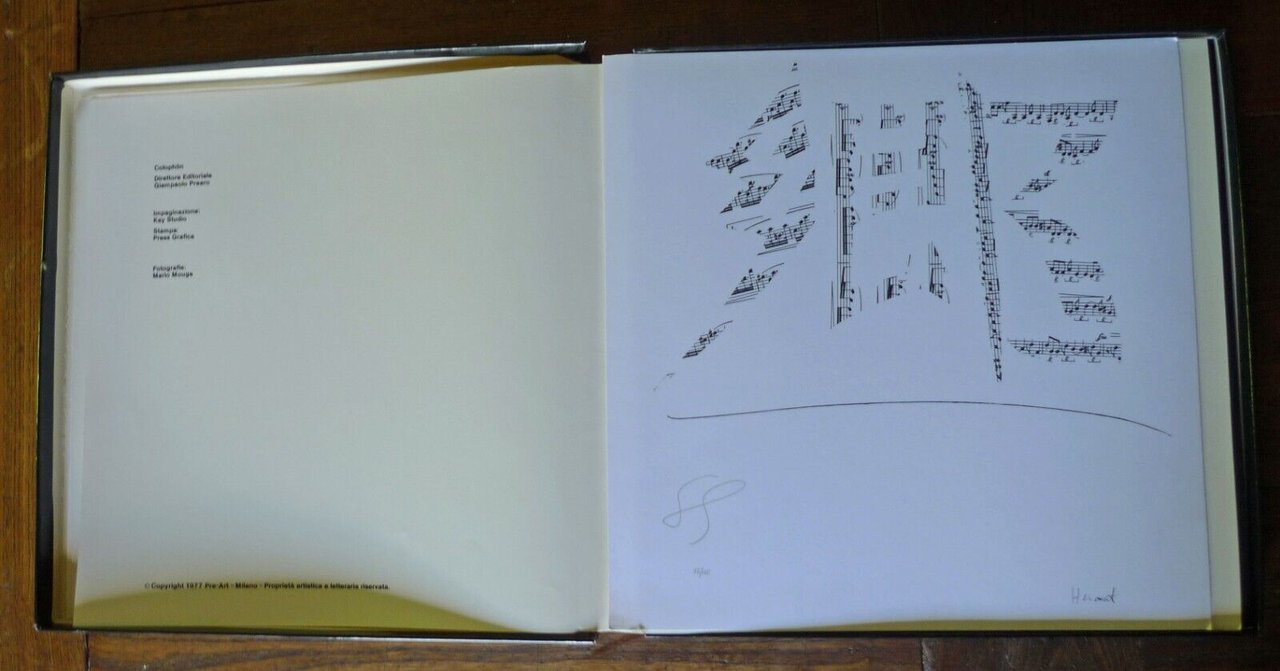 Colophon
Direttore Editoriale
Giampaolo Prearo
Impaginazione:
Key Studio
Stampa:
Press Grafica
Fotografie:
Mario Mouga
© Copyright 1977 Pre-Art - Milano - Proprietà artistica e letteraria riservata.